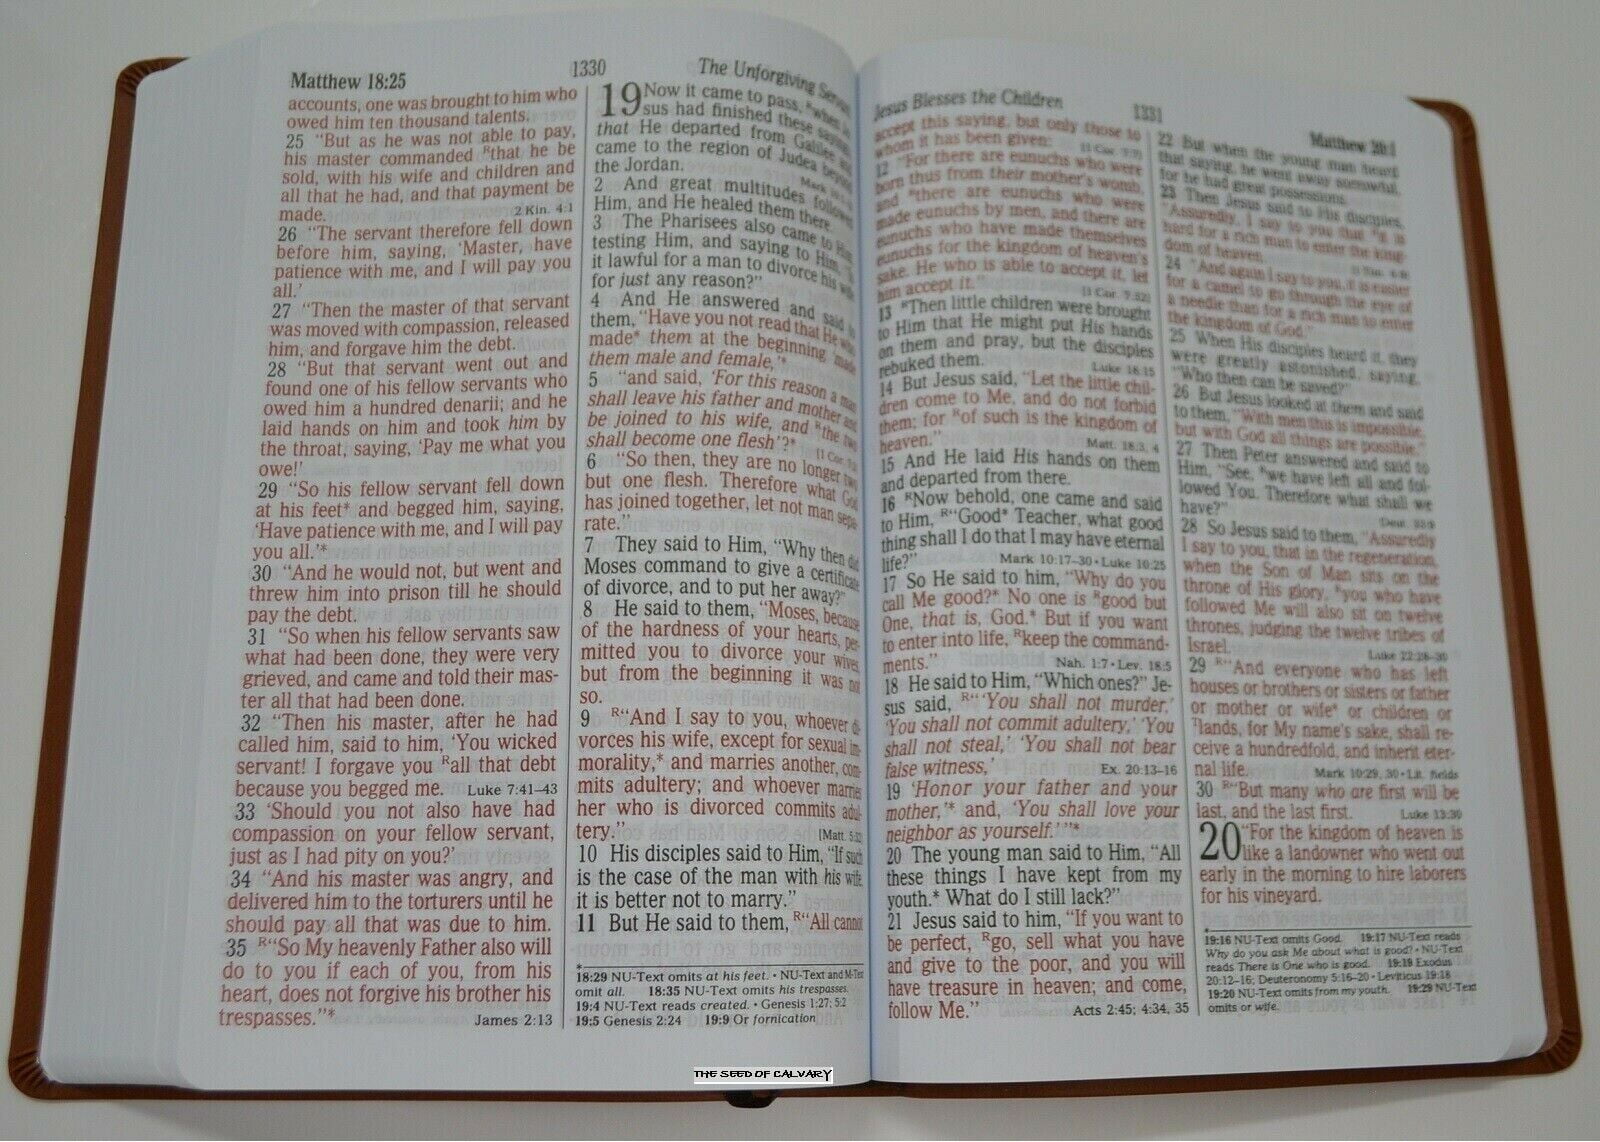 Matthew 18:25
1330
The Unforgiving Servan
accounts, one was brought to him who
owed him ten thousand talents.
25 "But as he was not able to pay,
his master commanded ᴿthat he be
sold, with his wife and children and
all that he had, and that payment be
made. 2 Kin. 4:1
26 "The servant therefore fell down
before him, saying, 'Master, have
patience with me, and I will pay you
all.'
27 "Then the master of that servant
was moved with compassion, released
him, and forgave him the debt.
28 "But that servant went out and
found one of his fellow servants who
owed him a hundred denarii; and he
laid hands on him and took him by
the throat, saying, 'Pay me what you
owe!'
29 "So his fellow servant fell down
at his feet* and begged him, saying,
'Have patience with me, and I will pay
you all.'*
30 "And he would not, but went and
threw him into prison till he should
pay the debt.
31 "So when his fellow servants saw
what had been done, they were very
grieved, and came and told their mas-
ter all that had been done.
32 "Then his master, after he had
called him, said to him, 'You wicked
servant! I forgave you ᴿall that debt
because you begged me. Luke 7:41–43
33 'Should you not also have had
compassion on your fellow servant,
just as I had pity on you?'
34 "And his master was angry, and
delivered him to the torturers until he
should pay all that was due to him.
35 ᴿ"So My heavenly Father also will
do to you if each of you, from his
heart, does not forgive his brother his
trespasses."* James 2:13
19 Now it came to pass, ᴿwhen
sus had finished these sayings
that He departed from Galilee
came to the region of Judea beyond
the Jordan. Mark
2 And great multitudes followed
Him, and He healed them there.
3 The Pharisees also came to Him
testing Him, and saying to Him,
it lawful for a man to divorce his wife
for just any reason?"
4 And He answered and said
them, "Have you not read that He who
made* them at the beginning 'made
them male and female,'*
5 "and said, 'For this reason a man
shall leave his father and mother and
be joined to his wife, and ᴿthe two
shall become one flesh'?* [1 Cor.
6 "So then, they are no longer two
but one flesh. Therefore what God
has joined together, let not man sepa-
rate."
7 They said to Him, "Why then did
Moses command to give a certificate
of divorce, and to put her away?"
8 He said to them, "Moses, because
of the hardness of your hearts, per-
mitted you to divorce your wives,
but from the beginning it was not
so.
9 ᴿ"And I say to you, whoever di-
vorces his wife, except for sexual im-
morality,* and marries another, com-
mits adultery; and whoever marries
her who is divorced commits adul-
tery." [Matt. 5:32
10 His disciples said to Him, "If such
is the case of the man with his wife,
it is better not to marry."
11 But He said to them, ᴿ"All cannot
*
18:29 NU-Text omits at his feet. • NU-Text and M-Text
omit all. 18:35 NU-Text omits his trespasses.
19:4 NU-Text reads created. • Genesis 1:27; 5:2
19:5 Genesis 2:24 19:9 Or fornication
Jesus Blesses the Children
1331
Matthew 20:1
accept this saying, but only those to
whom it has been given: [1 Cor. 7:7]
12 "For there are eunuchs who were
born thus from their mother's womb,
and ᴿthere are eunuchs who were
made eunuchs by men, and there are
eunuchs who have made themselves
eunuchs for the kingdom of heaven's
sake. He who is able to accept it, let
him accept it." [1 Cor. 7:32]
13 ᴿThen little children were brought
to Him that He might put His hands
on them and pray, but the disciples
rebuked them. Luke 18:15
14 But Jesus said, "Let the little chil-
dren come to Me, and do not forbid
them; for ᴿof such is the kingdom of
heaven." Matt. 18:3, 4
15 And He laid His hands on them
and departed from there.
16 ᴿNow behold, one came and said
to Him, ᴿ"Good* Teacher, what good
thing shall I do that I may have eternal
life?" Mark 10:17–30 • Luke 10:25
17 So He said to him, "Why do you
call Me good?* No one is ᴿgood but
One, that is, God.* But if you want
to enter into life, ᴿkeep the command-
ments." Nah. 1:7 • Lev. 18:5
18 He said to Him, "Which ones?" Je-
sus said, ᴿ"'You shall not murder,'
'You shall not commit adultery,' 'You
shall not steal,' 'You shall not bear
false witness,' Ex. 20:13–16
19 'Honor your father and your
mother,'* and, 'You shall love your
neighbor as yourself.'"*
20 The young man said to Him, "All
these things I have kept from my
youth.* What do I still lack?"
21 Jesus said to him, "If you want to
be perfect, ᴿgo, sell what you have
and give to the poor, and you will
have treasure in heaven; and come,
follow Me." Acts 2:45; 4:34, 35
22 But when the young man heard
that saying, he went away sorrowful,
for he had great possessions.
23 Then Jesus said to His disciples,
"Assuredly, I say to you that ᴿit is
hard for a rich man to enter the king-
dom of heaven.
24 "And again I say to you, it is easier
for a camel to go through the eye of
a needle than for a rich man to enter
the kingdom of God."
25 When His disciples heard it, they
were greatly astonished, saying,
"Who then can be saved?"
26 But Jesus looked at them and said
to them, "With men this is impossible,
but with God all things are possible."
27 Then Peter answered and said to
Him, "See, ᴿwe have left all and fol-
lowed You. Therefore what shall we
have?" Deut. 33:9
28 So Jesus said to them, "Assuredly
I say to you, that in the regeneration,
when the Son of Man sits on the
throne of His glory, ᴿyou who have
followed Me will also sit on twelve
thrones, judging the twelve tribes of
Israel. Luke 22:28–30
29 ᴿ"And everyone who has left
houses or brothers or sisters or father
or mother or wife* or children or
ᵀlands, for My name's sake, shall re-
ceive a hundredfold, and inherit eter-
nal life. Mark 10:29, 30 • Lit. fields
30 ᴿ"But many who are first will be
last, and the last first. Luke 13:30
20 "For the kingdom of heaven is
like a landowner who went out
early in the morning to hire laborers
for his vineyard.
*
19:16 NU-Text omits Good. 19:17 NU-Text reads
Why do you ask Me about what is good? • NU-Text
reads There is One who is good. 19:19 Exodus
20:12–16; Deuteronomy 5:16–20 • Leviticus 19:18
19:20 NU-Text omits from my youth. 19:29 NU-Text
omits or wife.
THE SEED OF CALVARY